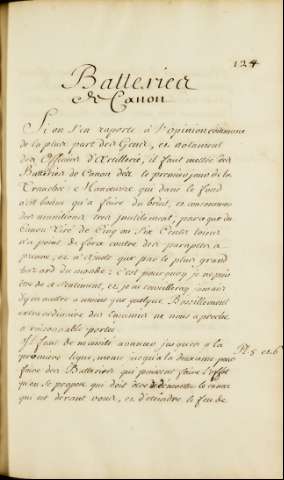 124
Batteries
de Canon
Si on s'en raporte à l'opinion commune
de la plus part des Gens, et notament
des Officiers d'Artillerie, il faut mettre des
Batteries de Canon dez le premier jour de la
Tranchée: Manœuvre qui dans le fond
n'est bonne qu'a faire du bruit, et consommer
des munitions tres inutilement; parceque du
Canon Tiré de Cinq ou Six Cents toises
n'a point de force contre des parapets a
preuve, et n'ajuste que par le plus grand
hazard du monde: C'est pourquoy je ne puis
être de ce sentiment, et je ne conseilleray jamais
d'y en mettre a moins que quelque
extraordinaire des Ennemis ne nous aproche
a raisonable portée.
Il faut de necessité avancer jusques a la
premiere ligne, même jusqu'a la deuxieme pour
faire des Batteries qui puissent faire l'effet
qu'on se propose qui doit être de démonter le canon
qui est devant vous, et d'eteindre le feu de
Pl. 5 et 6